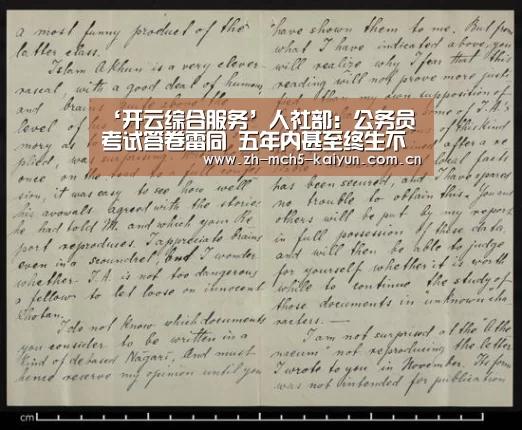 a most funny product of the
latter class.
Islam Akhun is a very clever
rascal, with a good deal of humour
and brains quite above the
level of his
mory as to
plied, was surprising.
once, on the road to a full confes-
sion, it was easy to see how well
his avowals agreed with the stories
he had told Mc. and which your Re-
port reproduces. I appreciate brains
even in a scoundrel, and I wonder
whether I.A. is not too dangerous
a fellow to let loose on innocent
Khotan.
I do not know which documents
you consider to be written in a
kind of debased Nāgarī, and must
hence reserve my opinion until you
have shown them to me. But from
what I have indicated above, you
will realize why I fear that this
reading will not prove more justi-
fied than my own supposition of
some of I.A.'s
of this kind
after a re-
ideal facts
has been secured, and I have spared
no trouble to obtain this. You and
others will be put by my report
in full possession of these data
and will then be able to judge
for yourself whether it is worth
while to continue the study of
those documents in "unknown cha-
racters. —
I am not surprised at the "Athe-
naeum" not reproducing the letter
I wrote to you in November. Its form
was not intended for publication
‘开云综合服务’人社部：公务员
考试答卷雷同 五年内甚至终生不
www.zh-mch5-kaiyun.com.cn
cm